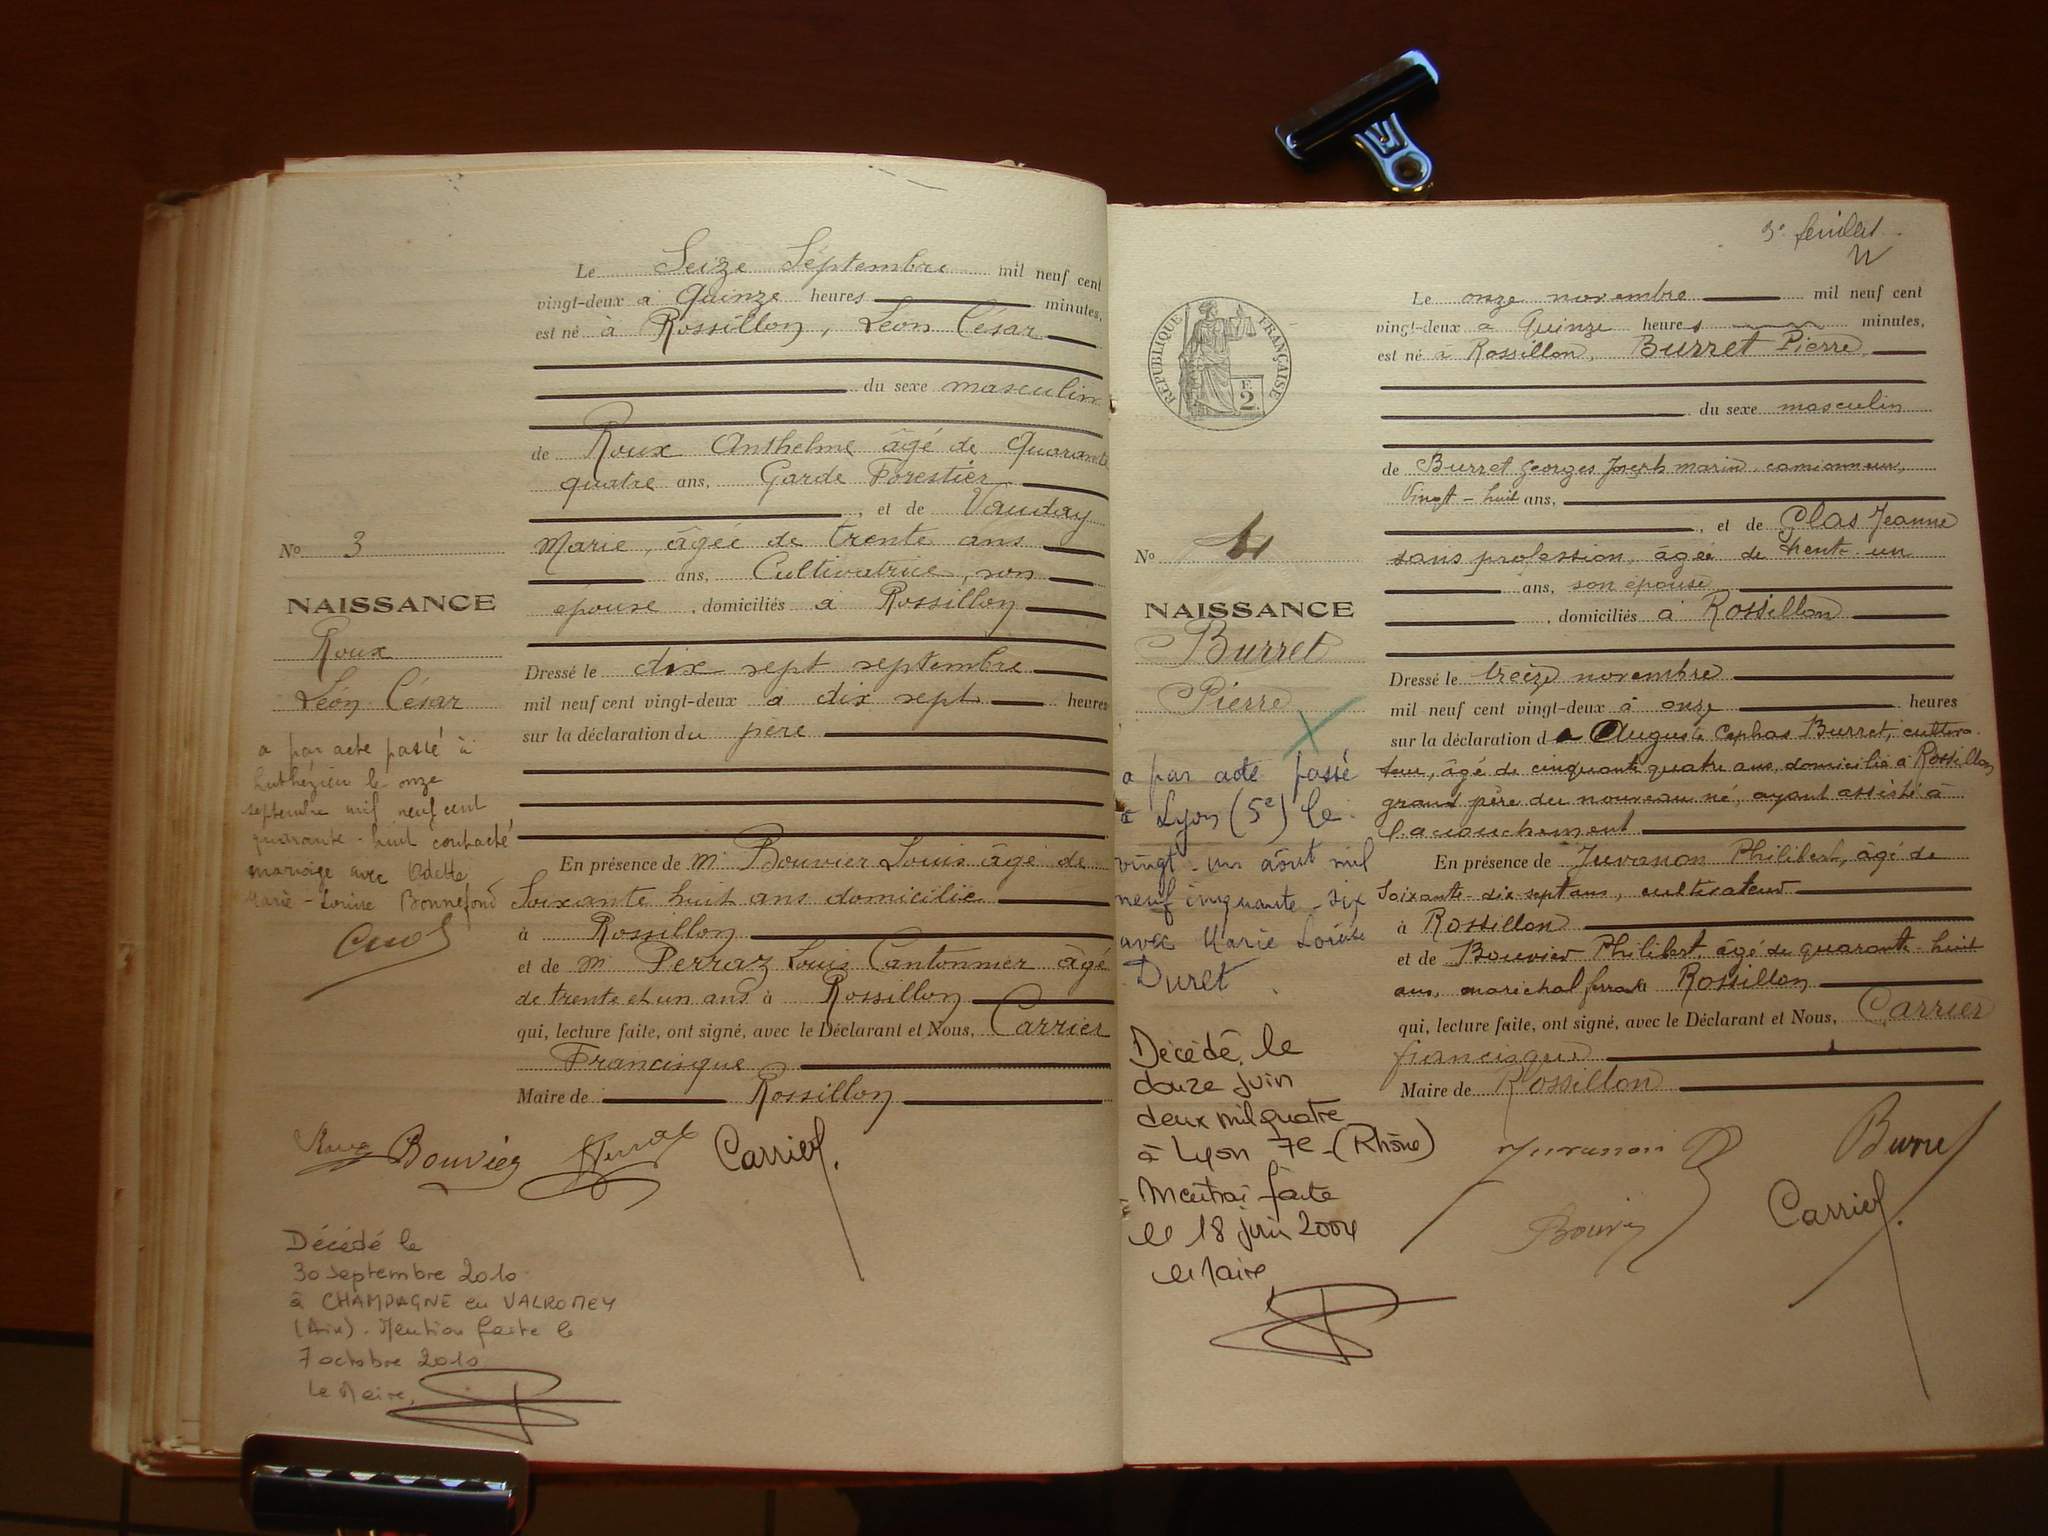 Le Seize Septembre mil neuf cent
vingt-deux à Quinze heures minutes,
est né à Rossillon, Léon César
du sexe masculin
de Roux Anthelme âgé de Quarante
quatre ans, Garde Forestier
, et de Vauday
Marie, âgée de trente ans
ans, Cultivatrice, son
épouse, domiciliés à Rossillon
N° 3
NAISSANCE
Roux
Léon César
a par acte passé à
Luthézieu le onze
septembre mil neuf cent
quarante-huit contracté
mariage avec Odette
Marie-Louise Bonnefond
Dressé le dix sept septembre
mil neuf cent vingt-deux à dix sept heures
sur la déclaration du père
En présence de Mr Bouvier Louis âgé de
Soixante huit ans domicilié
à Rossillon
et de Mr Perraz Louis Cantonnier âgé
de trente et un ans à Rossillon
qui, lecture faite, ont signé, avec le Déclarant et Nous, Carrier
Francisque
Maire de Rossillon
Roux Bouvier Perraz Carrier
Décédé le
30 septembre 2010
à CHAMPAGNE en VALROMEY
(Ain). Mention faite le
7 octobre 2010
Le Maire,
3e feuillet
RÉPUBLIQUE FRANÇAISE
F. 2
Le onze novembre mil neuf cent
vingt-deux à Quinze heures minutes,
est né à Rossillon, Burret Pierre
du sexe masculin
de Burret Georges Joseph marin camionneur,
vingt-huit ans,
, et de Plas Jeanne
sans profession, âgée de trente-un
ans, son épouse
, domiciliés à Rossillon
N° 4
NAISSANCE
Burret
Pierre
a par acte passé
à Lyon (5e) le
vingt-un août mil
neuf cinquante-six
avec Marie Louise
Duret
Décédé le
douze juin
deux mil quatre
à Lyon 7e (Rhône)
Mention faite
le 18 juin 2004
le Maire
Dressé le treize novembre
mil neuf cent vingt-deux à onze heures
sur la déclaration d Auguste Cephas Burret, cultiva-
teur, âgé de cinquante quatre ans, domicilié à Rossillon
grand père du nouveau né, ayant assisté à
l'accouchement
En présence de Juvanon Philibert, âgé de
Soixante-dix-sept ans, cultivateur
à Rossillon
et de Bouvier Philibert, âgé de quarante-huit
ans, maréchal ferrant à Rossillon
qui, lecture faite, ont signé, avec le Déclarant et Nous, Carrier
francisque
Maire de Rossillon
Juvanon Burret
Bouvier Carrier